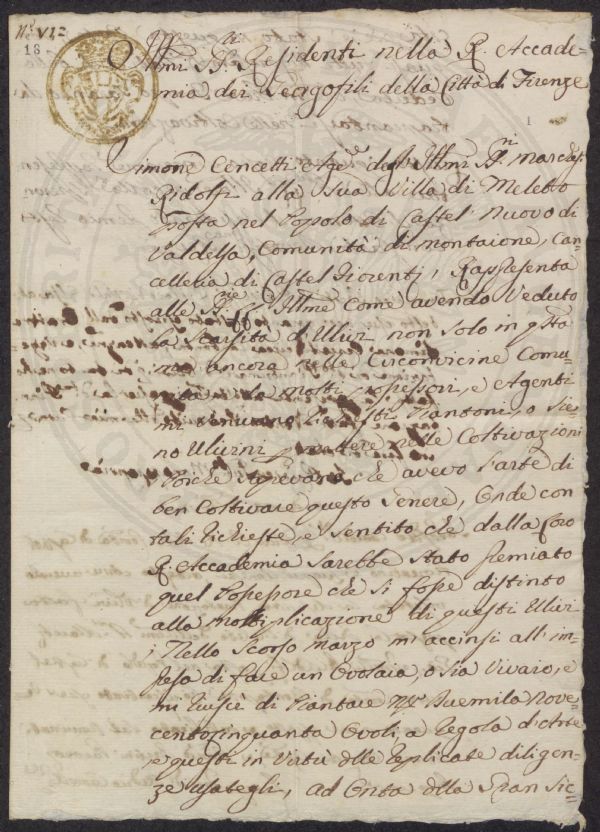 N.º VI.2
18
Illmi SS.ri Residenti nella R. Accade=
mia dei Georgofili della Città di Firenze
1
Simone Cencetti Agte degl'Illmi SS.ri March.si
Ridolfi alla Sua Villa di Meleto
posta nel Popolo di Castel'Nuovo di
Valdelsa, Comunità di Montaione, Can=
celleria di Castel Fiorento, Rappresenta
alle SS.rie Illme come avendo Veduto
la Scarsità d'Ulivi non solo in qta
ma ancora nelle Circonvicine Comu=
da molti possessori, e Agenti
mi venivano Richiesti Piantoni, o sie=
no Ulivini p. mettere nelle Coltivazioni
Porchè sapevano che avevo l'arte di
ben Coltivare questo Genere, Onde con
tali Richieste, e Sentito che dalla Loro
R. Accademia Sarebbe Stato Premiato
quel Possessore che si fosse distinto
alla moltiplicazione di questi Ulivi
; Nello Scorso Marzo m'accinsi all'im=
presa di fare un Ovolaia, o sia Vivaio, e
mi riuscì di Piantare N.º Duemila Nove=
centocinquanta Ovoli, a Regola d'Arte
e questi in Virtù dlle replicate diligen=
ze usategli, ad Onta dlla Gran Sic=